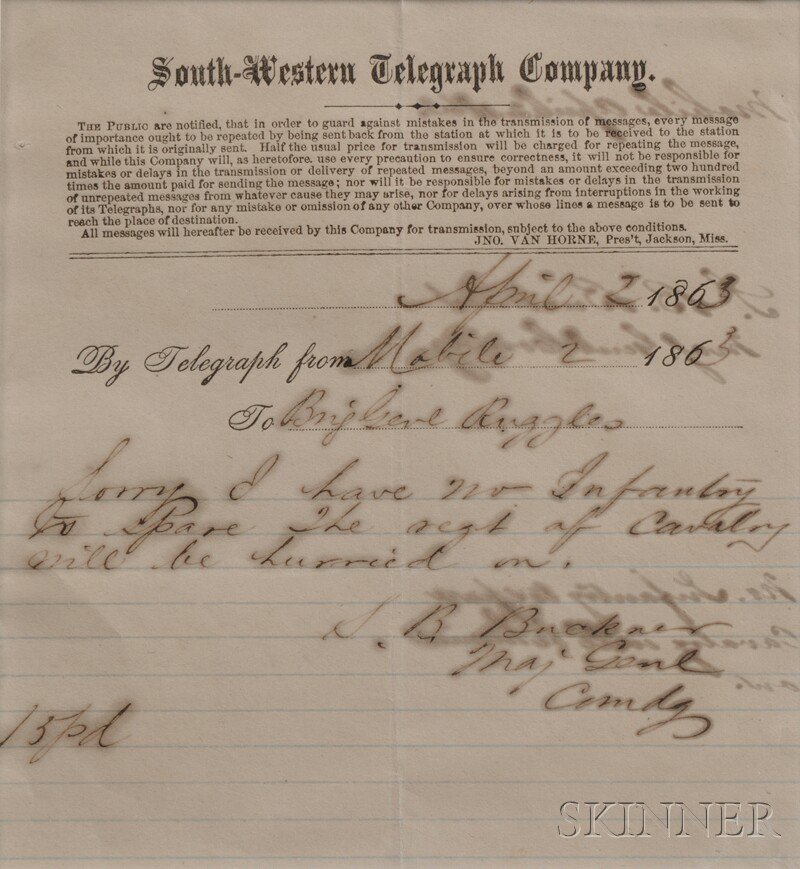 South-Western Telegraph Company.
The Public are notified, that in order to guard against mistakes in the transmission of messages, every message
of importance ought to be repeated by being sent back from the station at which it is to be received to the station
from which it is originally sent. Half the usual price for transmission will be charged for repeating the message,
and while this Company will, as heretofore. use every precaution to ensure correctness, it will not be responsible for
mistakes or delays in the transmission or delivery of repeated messages, beyond an amount exceeding two hundred
times the amount paid for sending the message; nor will it be responsible for mistakes or delays in the transmission
of unrepeated messages from whatever cause they may arise, nor for delays arising from interruptions in the working
of its Telegraphs, nor for any mistake or omission of any other Company, over whose lines a message is to be sent to
reach the place of destination.
All messages will hereafter be received by this Company for transmission, subject to the above conditions.
JNO. VAN HORNE, Pres't, Jackson, Miss.
April 2 1863
By Telegraph from Mobile 2 1863
To Brig Genl Ruggles
Sorry I have no Infantry
to spare The regt of Cavalry
will be hurried on.
S. B. Buckner
Maj Genl
Comdg
15 pd
SKINNER